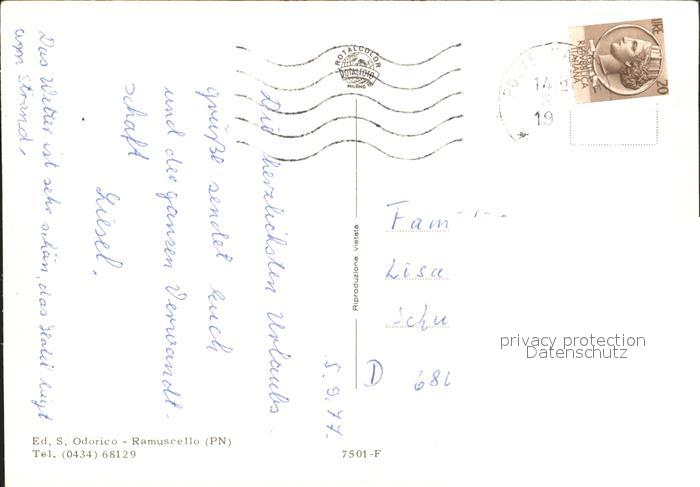 Die herzlichsten Urlaubs-
grüße sendet Euch
und der ganzen Verwandt-
schaft
Liesel.
Das Wetter ist sehr schön, das Hotel liegt
am Strand.
5.9.77.
ROTALCOLOR
ROTALFOTO
MILANO
Riproduzione vietata
LIRE
20
14
19
Fam
Lisa
Schu
D
privacy protection
Datenschutz
Ed. S. Odorico - Ramuscello (PN)
Tel. (0434) 68129
7501-F